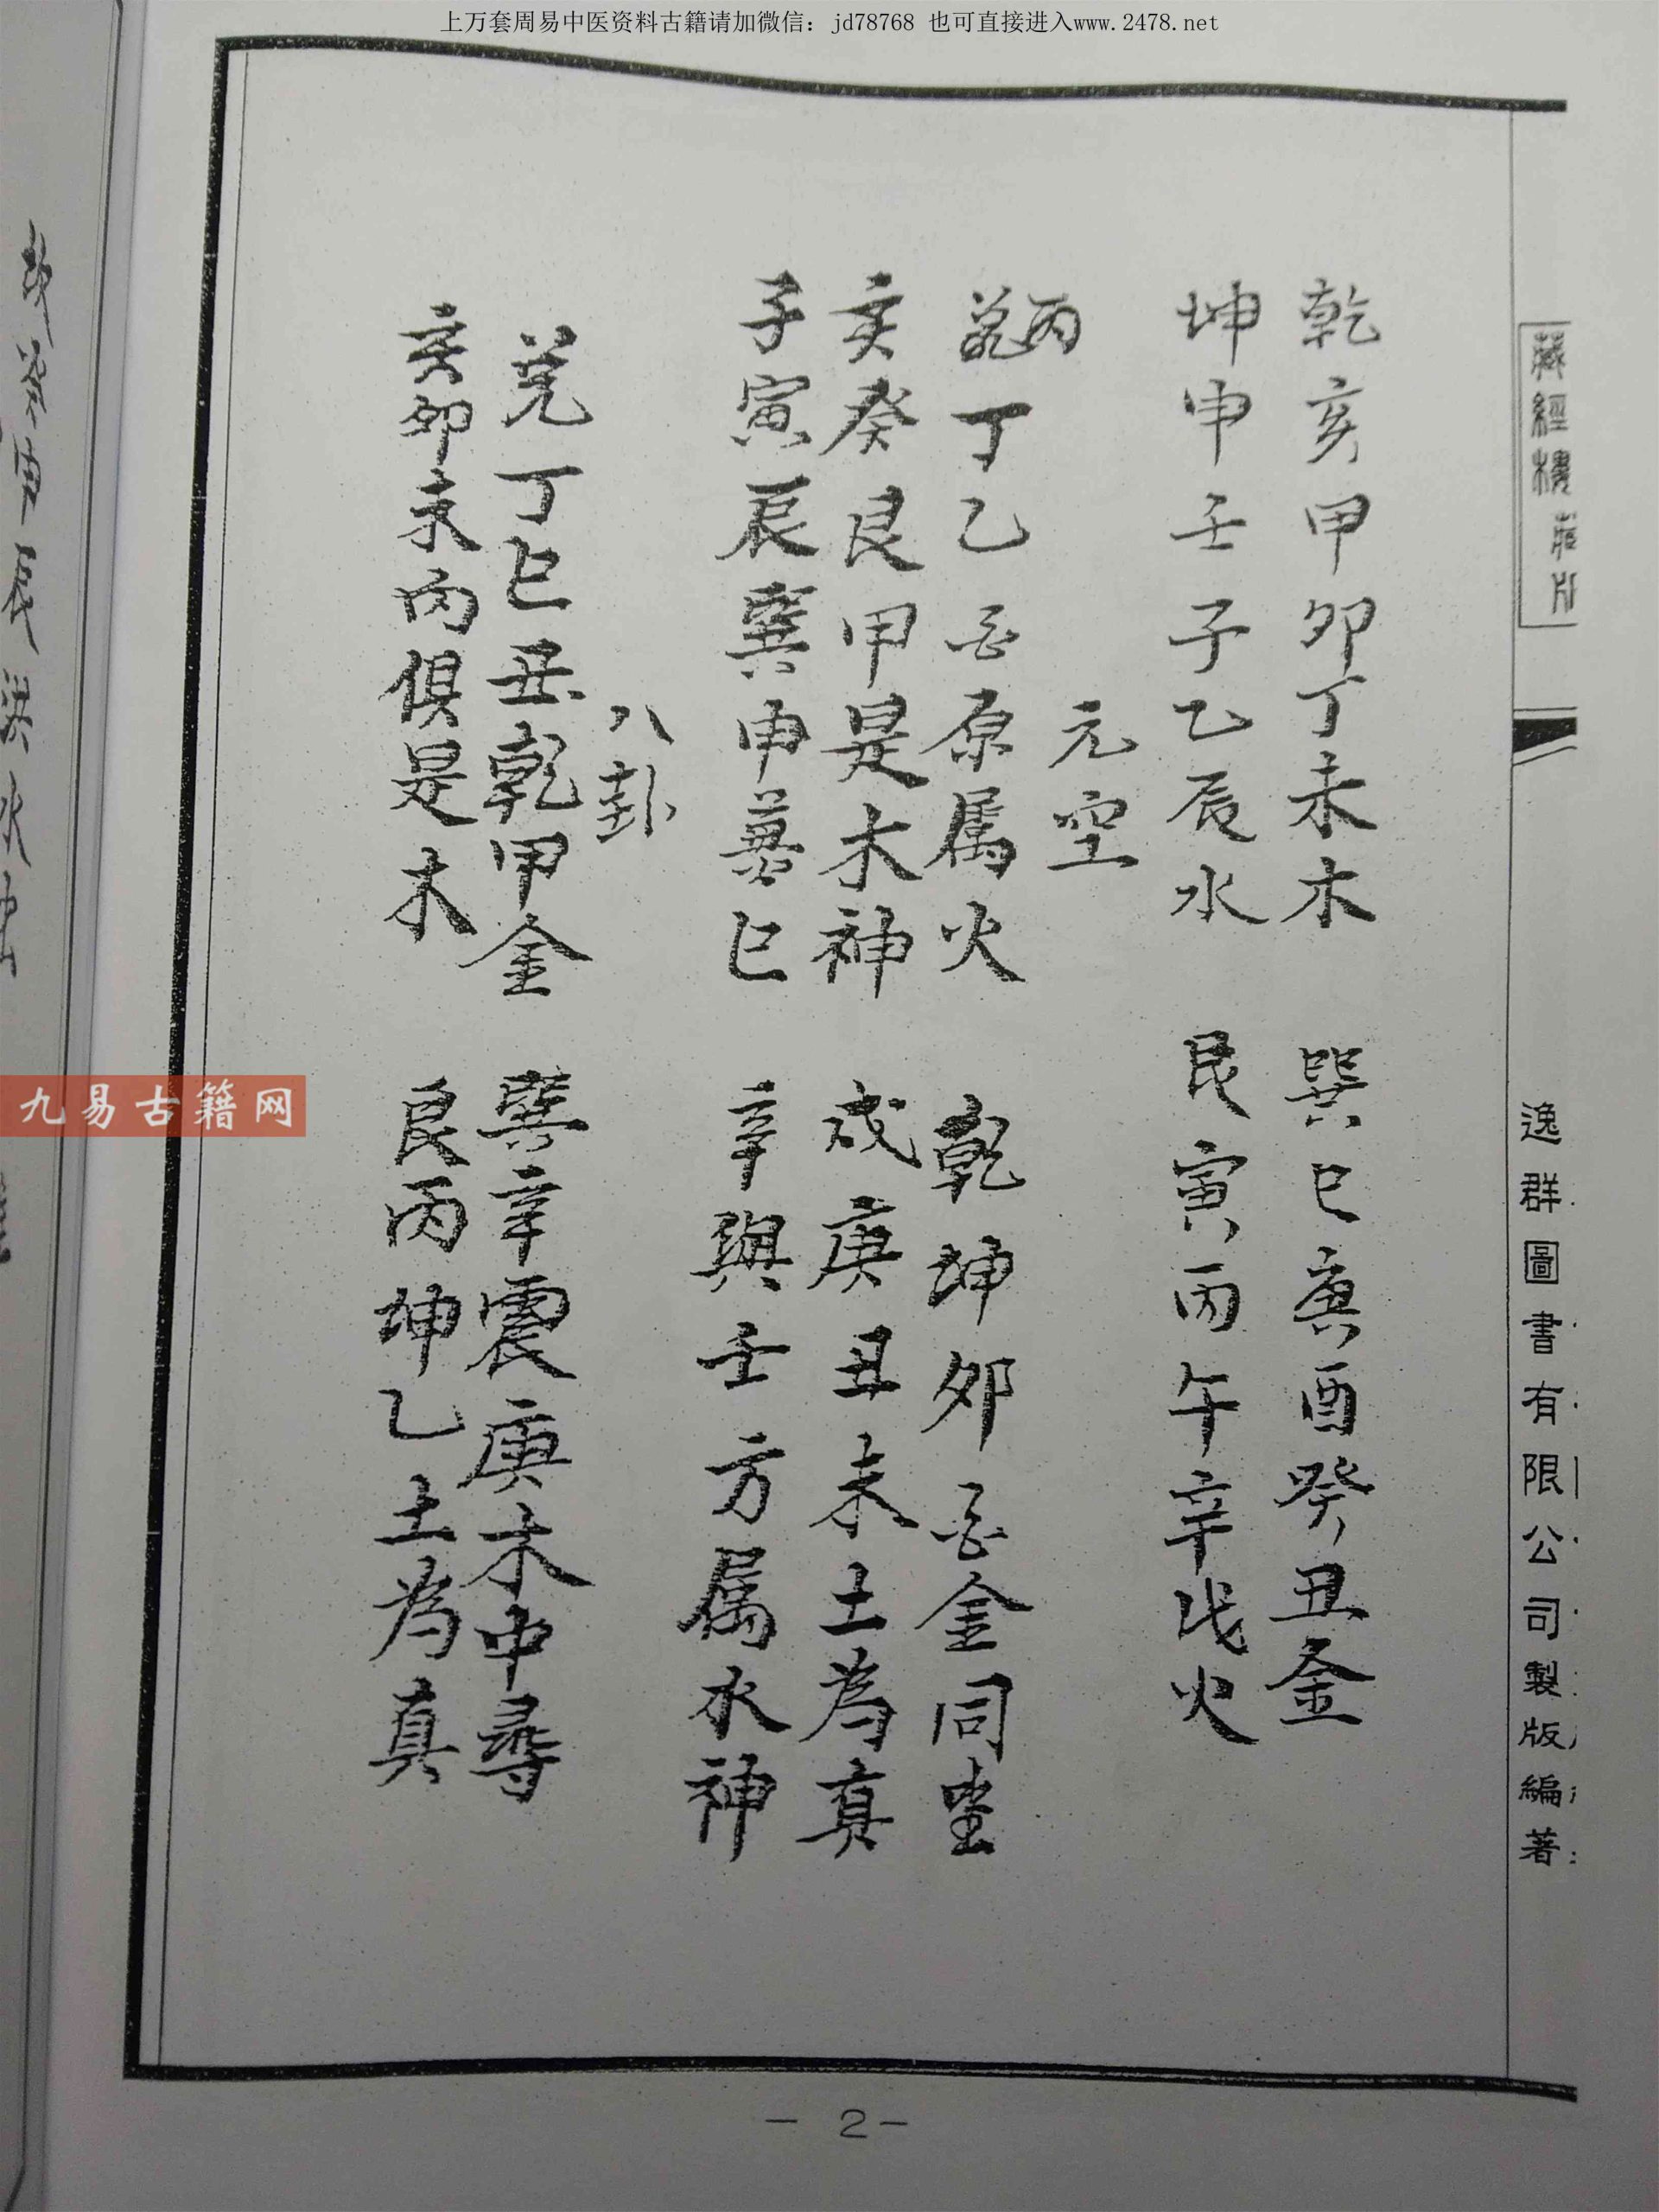 上万套周易中医资料古籍请加微信：jd78768 也可直接进入www.2478.net
藏經樓藏版
逸群圖書有限公司製版編著
乾亥甲卯丁未木 巽巳庚酉癸丑金
坤申壬子乙辰水 艮寅丙午辛戌火
元空
丙丁乙酉原属火 乾坤卯酉金同坐
亥癸艮甲是木神 戌庚丑未土為真
子寅辰巽申兼巳 辛與壬方属水神
八卦
兑丁巳丑乾甲金 巽辛震庚木中尋
亥卯未丙俱是木 艮丙坤乙土為真
九易古籍网
癸申辰
- 2 -